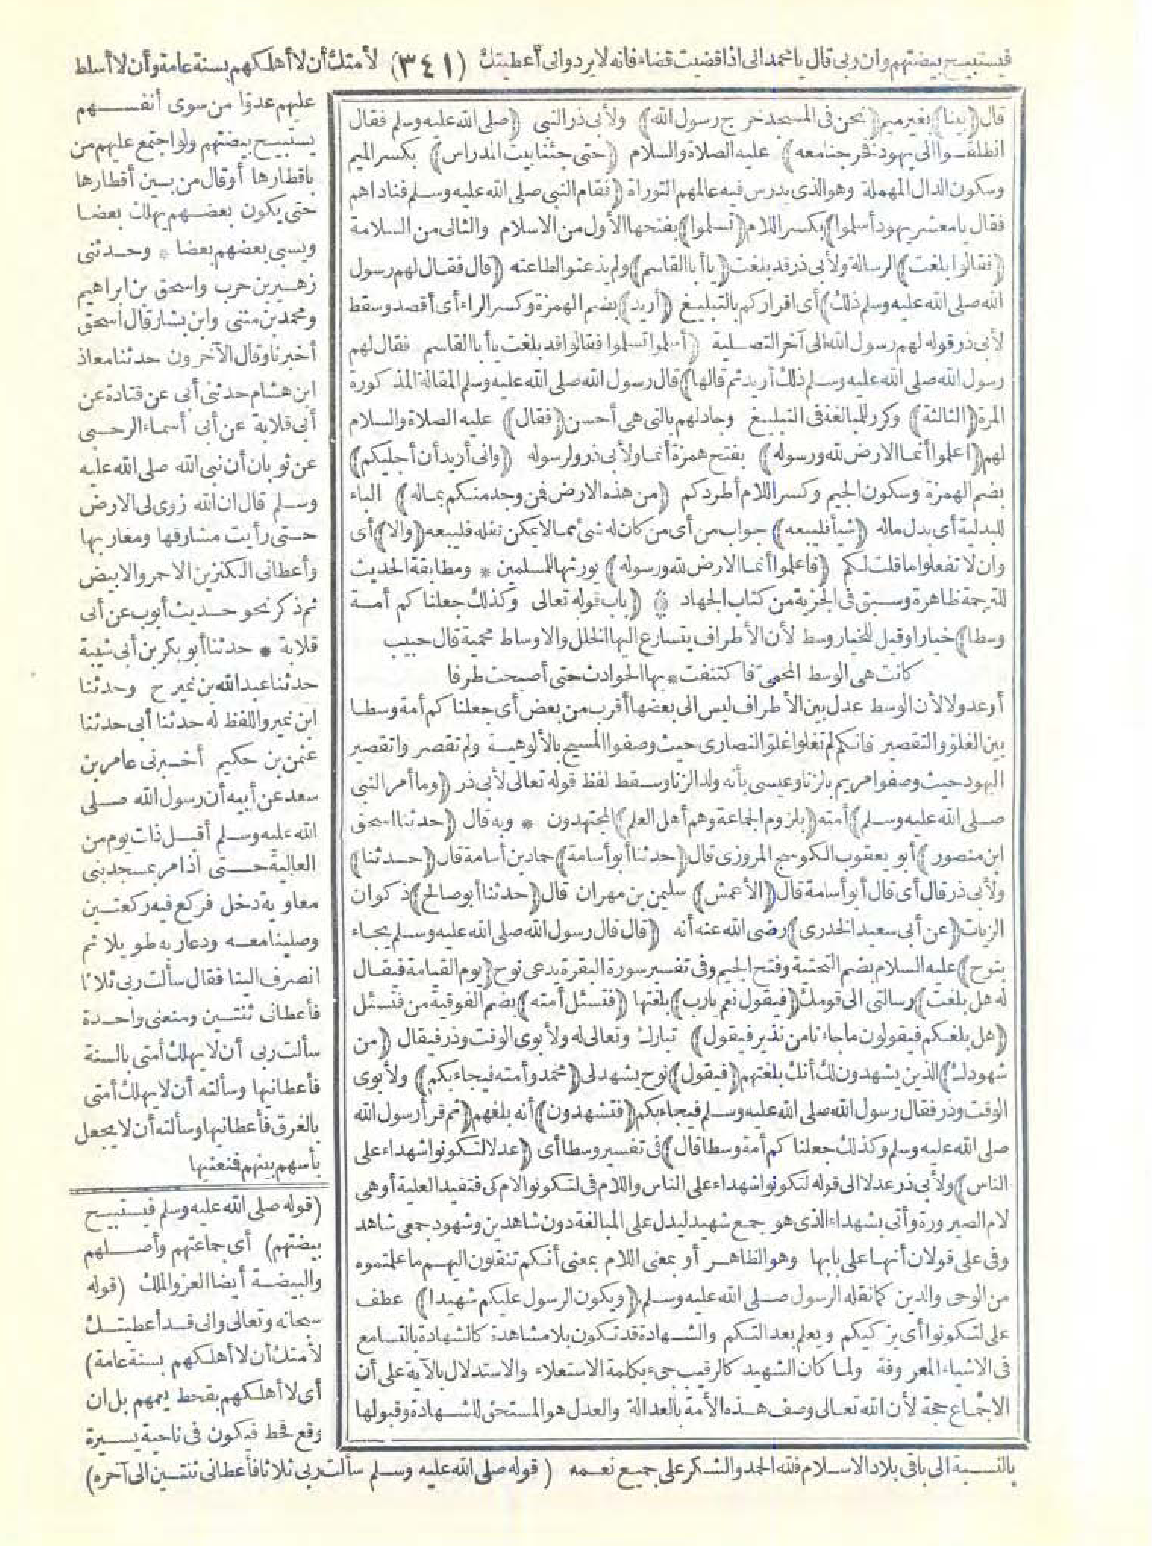 فيستبيح بيضتهم وان ربى قال يا محمد انى اذا قضيت قضاء فانه لا يرد وانى أعطيتك (٣٤١) لأمتك أن لا أهلكهم بسنة عامة وأن لا أسلط
عليهم عدوّا من سوى أنفسهم
يستبيح بيضتهم ولو اجتمع عليهم من
باقطارها أو قال من بين أقطارها
حتى يكون بعضهم يهلك بعضا
ويسبى بعضهم بعضا * وحدثنى
زهير بن حرب واسحق بن ابراهيم
ومحمد بن مثنى وابن بشار قال اسحق
أخبرنا وقال الآخرون حدثنا معاذ
ابن هشام حدثنى أبى عن قتادة عن
أبى قلابة عن أبى أسماء الرحبى
عن ثوبان أن نبى الله صلى الله عليه
وسلم قال ان الله زوى لى الارض
حتى رأيت مشارقها ومغاربها
وأعطانى الكنزين الاحمر والابيض
ثم ذكر نحو حديث أيوب عن أبى
قلابة * حدثنا أبو بكر بن أبى شيبة
حدثنا عبد الله بن نمير ح وحدثنا
ابن نمير واللفظ له حدثنا أبى حدثنا
عثمن بن حكيم أخبرنى عامر بن
سعد عن أبيه أن رسول الله صلى
الله عليه وسلم أقبل ذات يوم من
العالية حتى اذا مر بمسجد بنى
معاوية دخل فركع فيه ركعتين
وصلينا معه ودعا ربه طويلا ثم
انصرف الينا فقال سألت ربى ثلاثا
فأعطانى ثنتين ومنعنى واحدة
سألت ربى أن لا يهلك أمتى بالسنة
فأعطانيها وسألته أن لا يهلك أمتى
بالغرق فأعطانيها وسألته أن لا يجعل
بأسهم بينهم فمنعنيها
(قوله صلى الله عليه وسلم فيستبيح
بيضتهم) أى جماعتهم وأصلهم
والبيضة أيضا العز والملك (قوله
سبحانه وتعالى وانى قد أعطيتك
لأمتك أن لا أهلكهم بسنة عامة)
أى لا أهلكهم بقحط يعمهم بل ان
وقع قحط فيكون فى ناحية يسيرة
قال (بينا) بغير ميم (نحن فى المسجد خرج رسول الله) ولأبى ذر النبى (صلى الله عليه وسلم فقال
انطلقوا الى يهود فخرجنا معه) عليه الصلاة والسلام (حتى جئنا بيت المدراس) بكسر الميم
وسكون الدال المهملة وهو الذى يدرس فيه عالمهم التوراة (فقام النبى صلى الله عليه وسلم فناداهم
فقال يا معشر يهود أسلموا) بكسر اللام (تسلموا) بفتحها الأول من الاسلام والثانى من السلامة
(فقالوا بلغت) الرسالة ولأبى ذر قد بلغت (يا أبا القاسم) ولم يذعنوا لطاعته (قال فقال لهم رسول
الله صلى الله عليه وسلم ذلك) أى اقراركم بالتبليغ (أريد) بضم الهمزة وكسر الراء أى أقصد وسقط
لأبى ذر قوله لهم رسول الله الى آخر التصلية (أسلموا تسلموا فقالوا قد بلغت يا أبا القاسم فقال لهم
رسول الله صلى الله عليه وسلم ذلك أريد ثم قالها) قال رسول الله صلى الله عليه وسلم المقالة المذكورة
المرة (الثالثة) وكرر للمبالغة فى التبليغ وجادلهم بالتى هى أحسن (فقال) عليه الصلاة والسلام
لهم (اعلموا أنما الارض لله ورسوله) بفتح همزة أنما ولأبى ذر ولرسوله (وانى أريد أن أجليكم)
بضم الهمزة وسكون الجيم وكسر اللام أطردكم (من هذه الارض فمن وجد منكم بماله) الباء
للبدلية أى بدل ماله (شيأ فليبعه) جواب من أى من كان له شئ مما لا يمكن نقله فليبعه (والا) أى
وان لا تفعلوا ما قلت لكم (فاعلموا أنما الارض لله ورسوله) يورثها المسلمين * ومطابقة الحديث
للترجمة ظاهرة وسبق فى الجزية من كتاب الجهاد * (باب قوله تعالى وكذلك جعلناكم أمة
وسطا) خيارا وقيل للخيار وسط لأن الأطراف يتسارع اليها الخلل والاوساط محمية قال حبيب
كانت هى الوسط المحمى فاكتنفت * بها الحوادث حتى أصبحت طرفا
أو عدولا لأن الوسط عدل بين الأطراف ليس الى بعضها أقرب من بعض أى جعلناكم أمة وسطا
بين الغلو والتقصير فانكم لم تغلوا غلو النصارى حيث وصفوا المسيح بالألوهية ولم تقصروا تقصير
اليهود حيث وصفوا مريم بالزنا وعيسى بأنه ولد الزنا وسقط لفظ قوله تعالى لأبى ذر (وما أمر النبى
صلى الله عليه وسلم) أمته (بلزوم الجماعة وهم أهل العلم) المجتهدون * وبه قال (حدثنا اسحق
ابن منصور) أبو يعقوب الكوسج المروزى قال (حدثنا أبو أسامة) حماد بن أسامة قال (حدثنا)
ولأبى ذر قال أى قال أبو أسامة قال (الأعمش) سليمن بن مهران قال (حدثنا أبو صالح) ذكوان
الزيات (عن أبى سعيد الخدرى) رضى الله عنه أنه (قال قال رسول الله صلى الله عليه وسلم يجاء
بنوح) عليه السلام بضم التحتية وفتح الجيم وفى تفسير سورة البقرة يدعى نوح (يوم القيامة فيقال
له هل بلغت) رسالتى الى قومك (فيقول نعم يارب) بلغتها (فتسئل أمته) بضم الفوقية من فتسئل
(هل بلغكم فيقولون ما جاءنا من نذير فيقول) تبارك وتعالى له ولأبوى الوقت وذر فيقال (من
شهودك) الذين يشهدون لك أنك بلغتهم (فيقول) نوح يشهد لى (محمد وأمته فيجاء بكم) ولأبوى
الوقت وذر فقال رسول الله صلى الله عليه وسلم فيجاء بكم (فتشهدون) أنه بلغهم (ثم قرأ رسول الله
صلى الله عليه وسلم وكذلك جعلناكم أمة وسطا قال) فى تفسير وسطا أى (عدلا لتكونوا شهداء على
الناس) ولأبى ذر عدلا الى قوله لتكونوا شهداء على الناس واللام فى لتكونوا لام كى فتفيد العلية أو هى
لام الصيرورة وأتى بشهداء الذى هو جمع شهيد ليدل على المبالغة دون شاهدين وشهود جمعى شاهد
وفى على قولان أنها على بابها وهو الظاهر أو بمعنى اللام بمعنى أنكم تنقلون اليهم ما علمتموه
من الوحى والدين كما نقله الرسول صلى الله عليه وسلم (ويكون الرسول عليكم شهيدا) عطف
على لتكونوا أى يزكيكم ويعلم بعدالتكم والشهادة قد تكون بلا مشاهدة كالشهادة بالتسامع
فى الاشياء المعروفة ولما كان الشهيد كالرقيب جىء بكلمة الاستعلاء والاستدلال بالآية على أن
الاجماع حجة لأن الله تعالى وصف هذه الأمة بالعدالة والعدل هو المستحق للشهادة وقبولها
بالنسبة الى باقى بلاد الاسلام فلله الحمد والشكر على جميع نعمه (قوله صلى الله عليه وسلم سألت ربى ثلاثا فأعطانى ثنتين الى آخره)